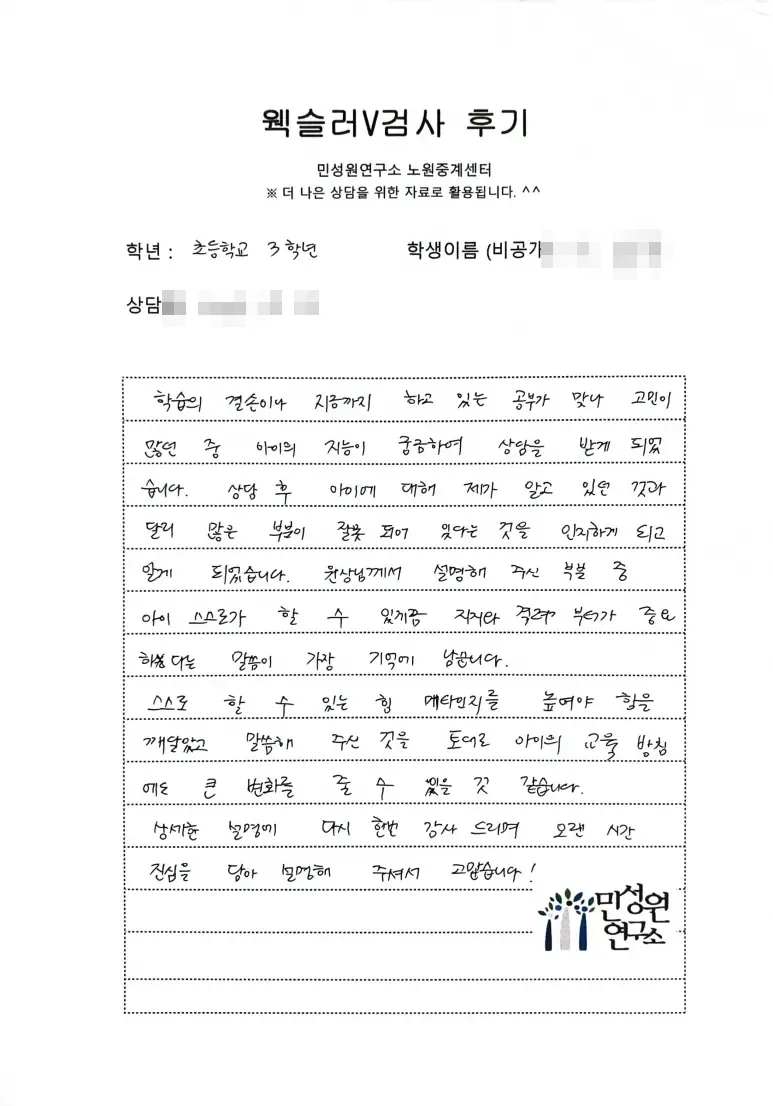 웩슬러V검사 후기
민성원연구소 노원중계센터
※ 더 나은 상담을 위한 자료로 활용됩니다. ^^
학년 : 초등학교 3학년 학생이름 (비공개
상담
학습의 결손이나 지금까지 하고 있는 공부가 맞나 고민이
많던 중 아이의 지능이 궁금하여 상담을 받게 되었
습니다. 상담 후 아이에 대해 제가 알고 있던 것과
달리 많은 부분이 잘못 되어 있다는 것을 인지하게 되고
알게 되었습니다. 원장님께서 설명해 주신 부분 중
아이 스스로가 할 수 있게끔 지지와 격려 부터가 중요
하다는 말씀이 가장 기억에 남습니다.
스스로 할 수 있는 힘 메타인지를 높여야 함을
깨달았고 말씀해 주신 것을 토대로 아이의 교육 방침
에도 큰 변화를 줄 수 있을 것 같습니다.
상세한 설명에 다시 한번 감사 드리며 오랜 시간
진심을 담아 설명해 주셔서 고맙습니다!
민성원
연구소